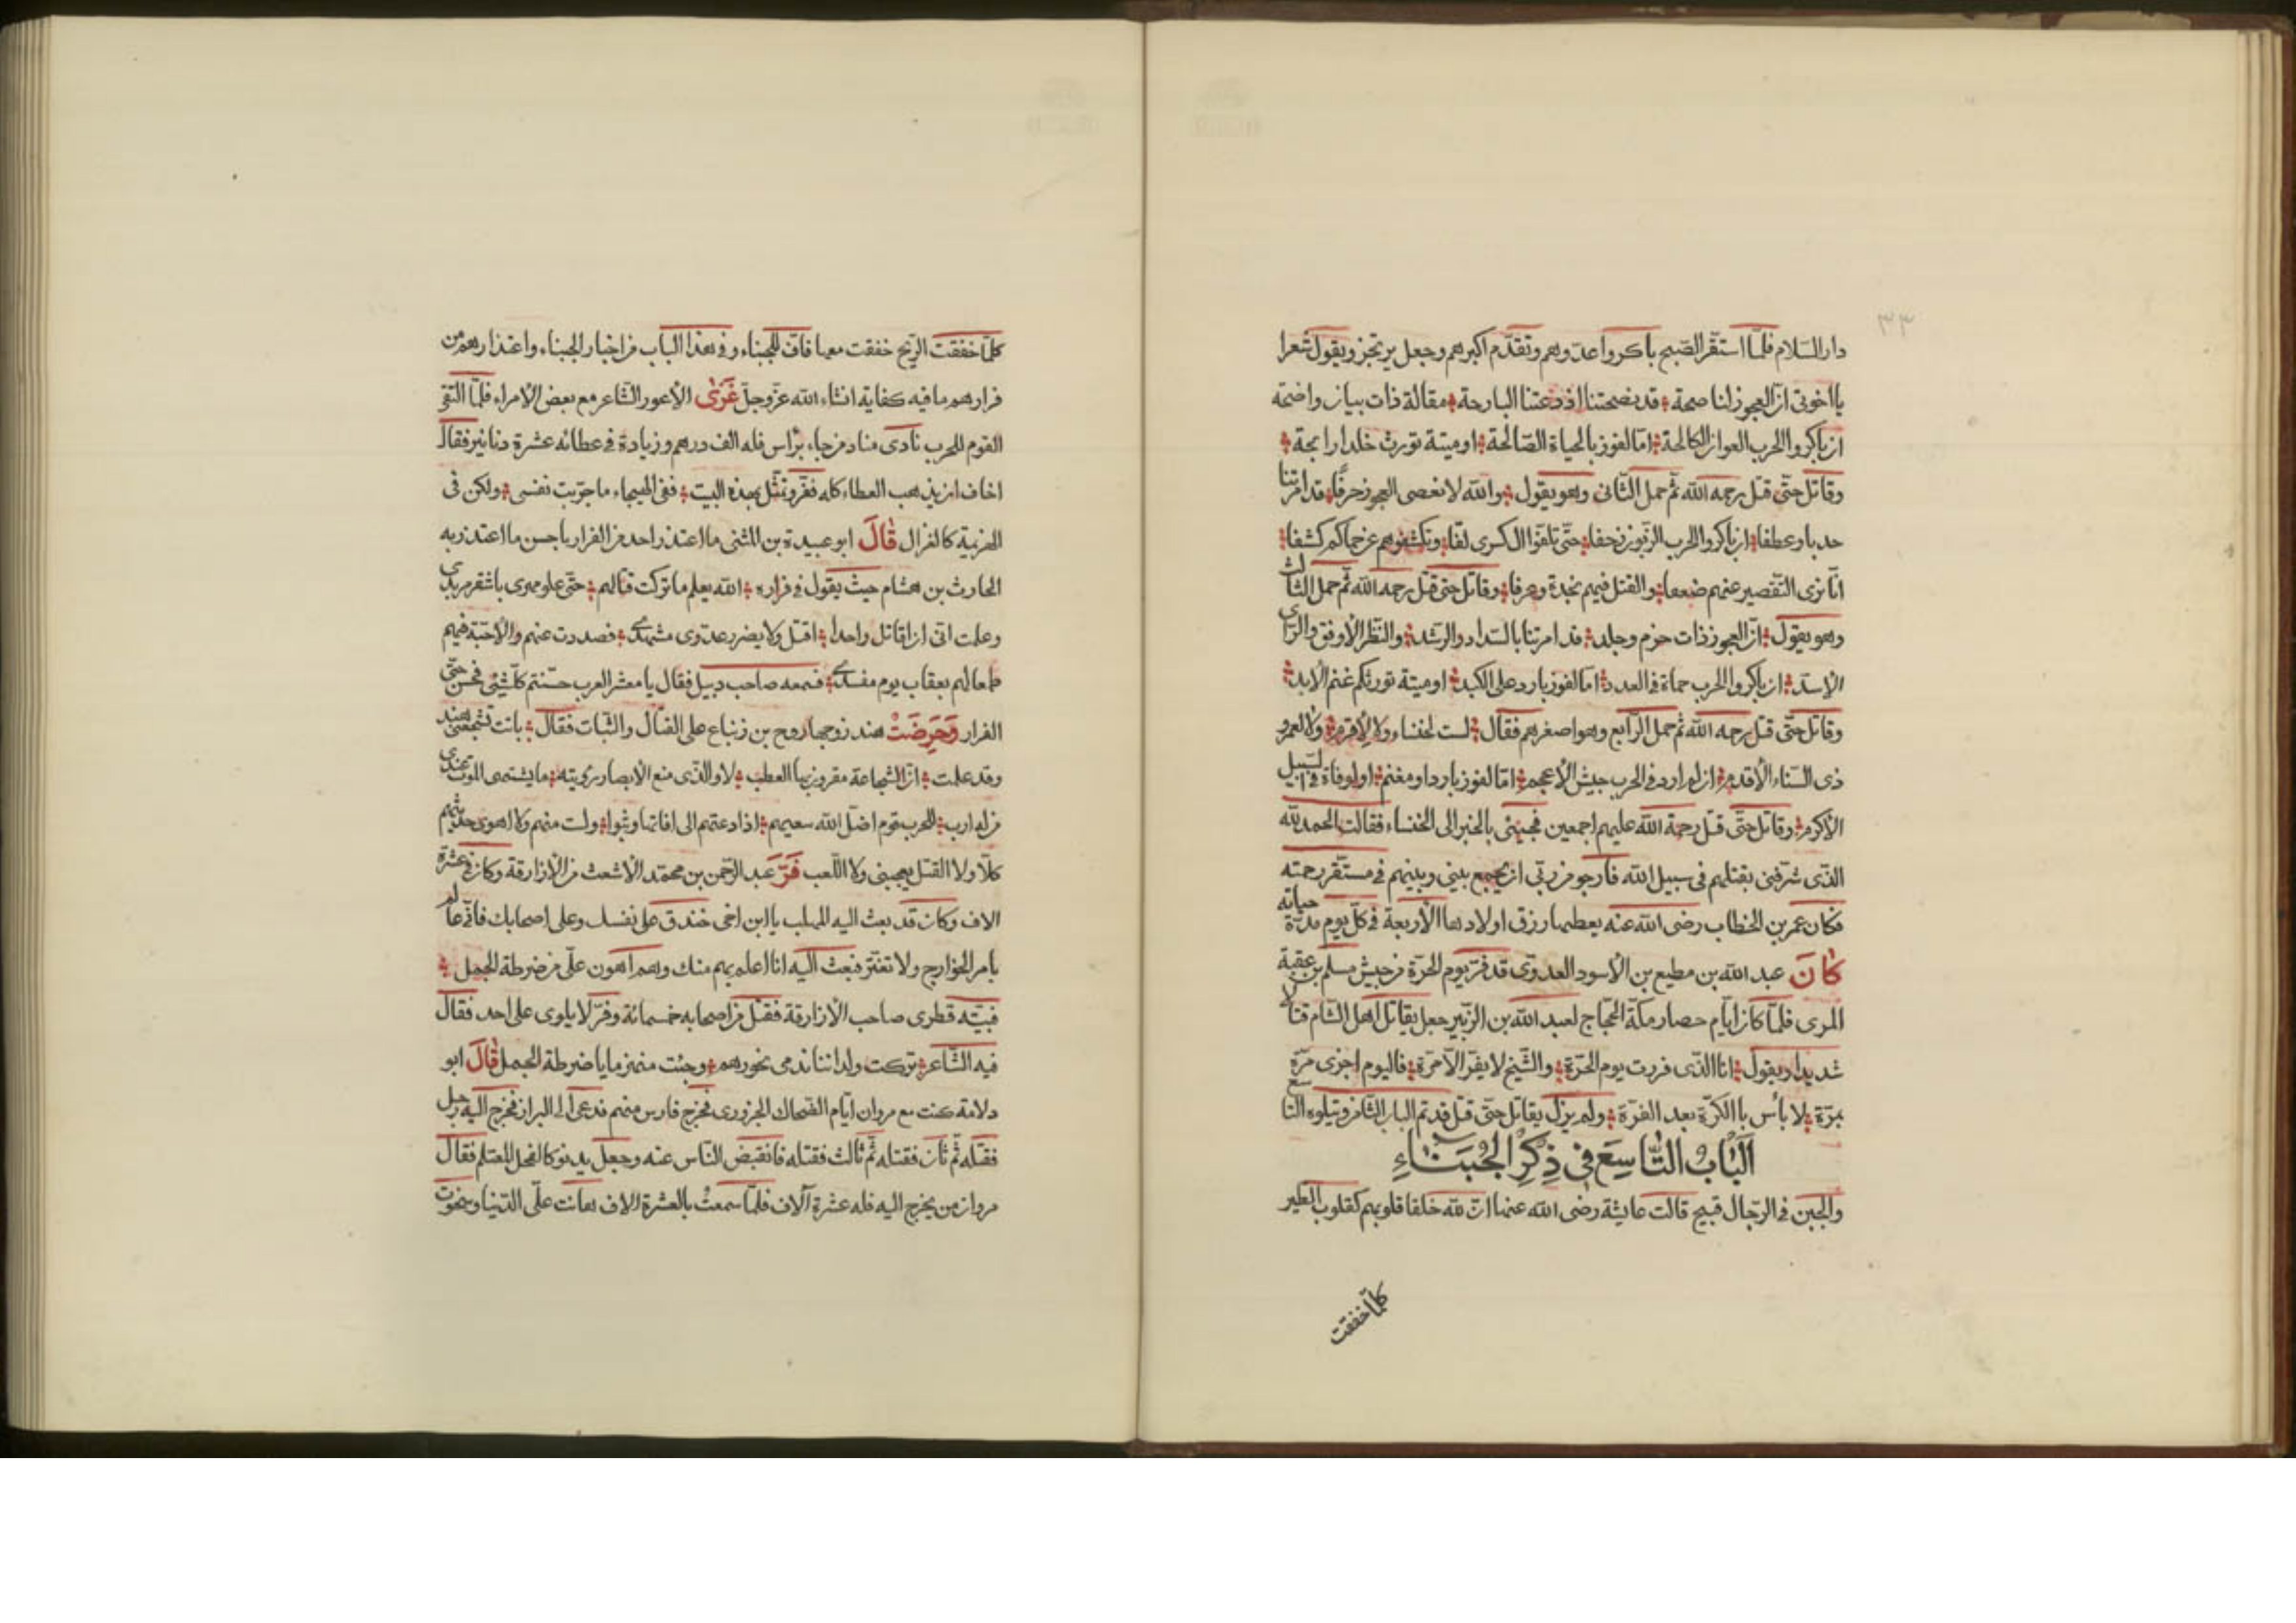 ٣٣
دار السّلام فلمّا استقرّ الصّبح باكروا عدوهم وتقدّم اكبرهم وجعل يرتجز ويقول شعرا
يا اخوتى انّ العجوز لنا صحة قد نصحتنا اذ دعتنا البارحة مقالة ذات بيان واضحة
ان باكروا الحرب العوان الكالحة امّا لفوز بالحياة الصّالحة او ميتة تورث خلدا رابحة
وقاتل حتّى قتل رحمه الله ثمّ حمل الثّانى وهو يقول والله لا نعصى العجوز حرفًا قد امرتنا
حدبا وعطفا ان باكروا الحرب الزّبون زحفا حتّى تلفّوا ال كسرى لفّا وتكشفوهم عن حماكم كشفا
انّا نرى التّقصير عنهم ضعفا والقتل فيهم نجدة وعرفا وقاتل حتى قتل رحمه الله ثمّ حمل الثّالث
وهو يقول انّ العجوز ذات حزم وجلد قد امرتنا بالسّداد والرّشد والنّظر الأوفق والرّاى
الأسدّ ان باكروا الحرب حماة فى العدد امّا لفوز بارد على الكبد او ميتة تورثكم غنم الأبد
وقاتل حتّى قتل رحمه الله ثمّ حمل الرّابع وهو اصغرهم فقال لست لخنساء ولا لأقرم ولا لعمرو
ذى السّناء الأقدم ان لم ارد فى الحرب جيش الأعجم امّا لفوز بارد او مغنم او لوفاة فى السّبيل
الأكرم وقاتل حتّى قتل رحمة الله عليهم اجمعين فجيئى بالخبر الى الخنساء فقالت الحمد لله
الّذى شرّفنى بقتلهم فى سبيل الله فأرجو من ربّى ان يجمع بينى وبينهم فى مستقرّ رحمته
فكان عمر بن الخطاب رضى الله عنه يعطيها رزق اولادها الأربعة فى كلّ يوم مدّة حياته
كَانَ عبد الله بن مطيع بن الأسود العدوّى قد فرّ يوم الحرّة من جيش مسلم بن عقبة
المرى فلمّا كان ايّام حصار مكّة الحجّاج لعبد الله بن الزّبير جعل يقاتل اهل الشّام قتالا
شديدا ويقول انا الّذى فررت يوم الحرّة والشّيخ لا يفرّ الّا مرّة فاليوم اجزى مرّة
بمرّة لا بأس با الكرّة بعد الفرّة ولم يزل يقاتل حتّى قتل قد تم الباب الثّامن ويتلوه التاسع
اَلْبَابُ التَّاسِعَ فِى ذِكْرِ الْجُبَنَاءِ
والجبن فى الرّجال قبيح قالت عايشة رضى الله عنها انّ لله خلقا قلوبهم كقلوب الطّير
كلّما خففت
كلّما خففت الرّيح خففت معها فافّ للجبناء وفى هذا الباب من اخبار الجبناء واعتذارهم من
فرارهم ما فيه كفاية انشاء الله عزّ وجلّ غَزَى الأعور الشّاعر مع بعض الأمراء فلمّا التقى
القوم للحرب نادى مناد من جاء برأس فله الف درهم وزيادة فى عطائه عشرة دنانير فقال
اخاف ان يذهب العطاء كله ففرّ وتمثّل بهذه البيت ففى الهيجاء ما جرّبت نفسى ولكن فى
الهزيمة كالغزال قَالَ ابو عبيدة بن المثنى ما اعتذر احد من الفرار باحسن ما اعتذر به
الحارث بن هشام حيث يقول فى فراره الله يعلم ما تركت قتالهم حتّى علو مهرى باشقر مزبدى
وعلمت انّى ان اقاتل واحدا اقتل ولا يضرر عدوّى مشهدى فصددت عنهم والأحبّة فيهم
طمعا لهم بعقاب يوم مفسد فسمعه صاحب دبيل فقال يا معشر العرب حسّنتم كلّ شيئ فحسن حتّى
الفرار وَحَرَضَتْ هند زوجها روح بن زنباع على القتال والثّبات فقال باتت تشجّعنى هند
وقد علمت انّ الشّجاعة مقرون بها العطب لا والّذى منع الأبصار رؤيته ما يشتهى الموت عندى
من له ارب للحرب قوم اضلّ الله سعيهم اذا دعتهم الى افاتها وثبوا ولست منهم ولا اهوى حديثهم
كلّا ولا القتل يعجبنى ولا اللّعب فَرَّ عبد الرّحمن بن محمّد الأشعث من الأزارقة وكان فى عشرة
الاف وكان قد بعث اليه المهلب يا ابن اخى خندق على نفسك وعلى اصحابك فانّى عالم
بامر الخوارج ولا تغترّ فبعث اليه انا اعلم بهم منك وهم اهون علّى من ضرطة الجمل
فبيّته قطرى صاحب الأزارقة فقتل من اصحابه خمسمائة وفرّ لا يلوى على احد فقال
فيه الشّاعر تركت ولداننا ندمى نحورهم وجئت منهزما يا ضرطة الجمل قَالَ ابو
دلامة كنت مع مروان ايّام الضحاك الجزورى فخرج فارس منهم فدعى الى البراز فخرج اليه رجل
فقتله ثمّ ثان فقتله ثمّ ثالث فقتله فانقبض النّاس عنه وجعل يدنو كالفحل المعتلم فقال
مروان من يخرج اليه فله عشرة آلاف فلمّا سمعت بالعشرة الاف هانت علّى الدّنيا وسخوت